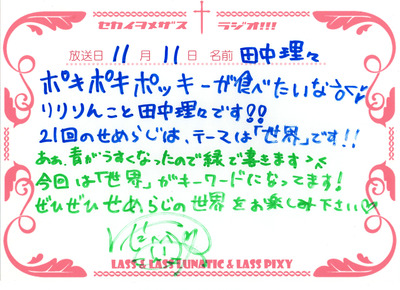 セカイヲメザス ラジオ!!!
放送日 11月11日 名前 田中理々
ポキポキポッキーが食べたいなぁ♡
りりりんこと田中理々です!!
21回のせめらじは、テーマは「世界」です!!
あぁ、青がうすくなったので緑で書きます><
今回は「世界」がキーワードになってます!
ぜひぜひせめらじの世界をお楽しみ下さい♡
LASS & LASS LUNATIC & LASS PIXY